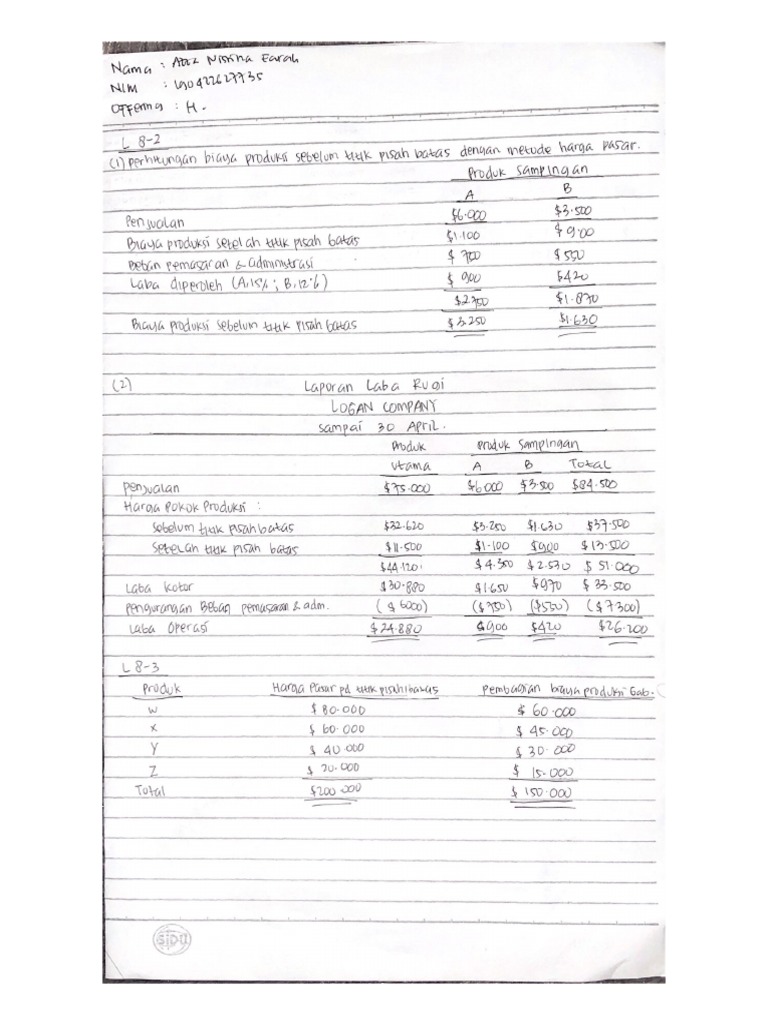 Nama :
NIM : 190422627735
Offering : H.
L 8-2
(1) Perhitungan biaya produksi sebelum titik pisah batas dengan metode harga pasar.
Produk Sampingan
A B
Penjualan $6.000 $3.500
Biaya produksi setelah titik pisah batas $1.100 $900
Beban pemasaran & administrasi $ 750 $550
Laba diperoleh (A,15% ; B,12%) $ 900 $420
$2.750 $1.870
Biaya produksi sebelum titik pisah batas $3.250 $1.630
(2) Laporan Laba Rugi
LOGAN COMPANY
sampai 30 April.
Produk Produk Sampingan
Utama A B Total
Penjualan $75.000 $6.000 $3.500 $84.500
Harga Pokok Produksi :
Sebelum titik pisah batas $32.620 $3.250 $1.630 $37.500
Setelah titik pisah batas $11.500 $1.100 $900 $13.500
$44.120 $4.350 $2.530 $ 51.000
Laba kotor $30.880 $1.650 $970 $ 33.500
Pengurangan Beban pemasaran & adm. ($ 6000) ($750) ($550) ($7.300)
Laba Operasi $24.880 $900 $420 $26.200
L 8-3
Produk Harga Pasar pd titik pisah batas Pembagian biaya produksi Gab.
W $ 80.000 $ 60.000
X $ 60.000 $ 45.000
Y $ 40.000 $ 30.000
Z $ 20.000 $ 15.000
Total $200.000 $ 150.000
SIDU